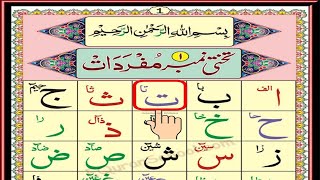 1
بِسْمِ اللهِ الرَّحْمٰنِ الرَّحِيْمِ
تختی نمبر ۱ مفردات
ا الف ب با ت تا ث ثا ج جیم
ح حا خ خا ذ ذال ر را
ز زا س سین ش شین ص صاد ض ضاد